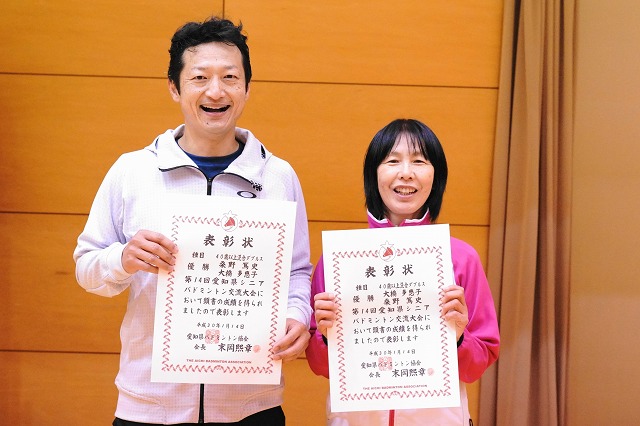 表彰状
種目 40歳以上混合ダブルス
優勝 桑野篤史
大橋多恵子
第14回愛知県シニア
バドミントン交流大会に
おいて頭書の成績を得られ
ましたので表彰します
平成30年1月14日
愛知県バドミントン協会
会長 末岡熙章
THE AICHI BADMINTON ASSOCIATION
表彰状
種目 40歳以上混合ダブルス
優勝 大橋多恵子
桑野篤史
第14回愛知県シニア
バドミントン交流大会に
おいて頭書の成績を得られ
ましたので表彰します
平成30年1月14日
愛知県バドミントン協会
会長 末岡熙章
THE AICHI BADMINTON ASSOCIATION